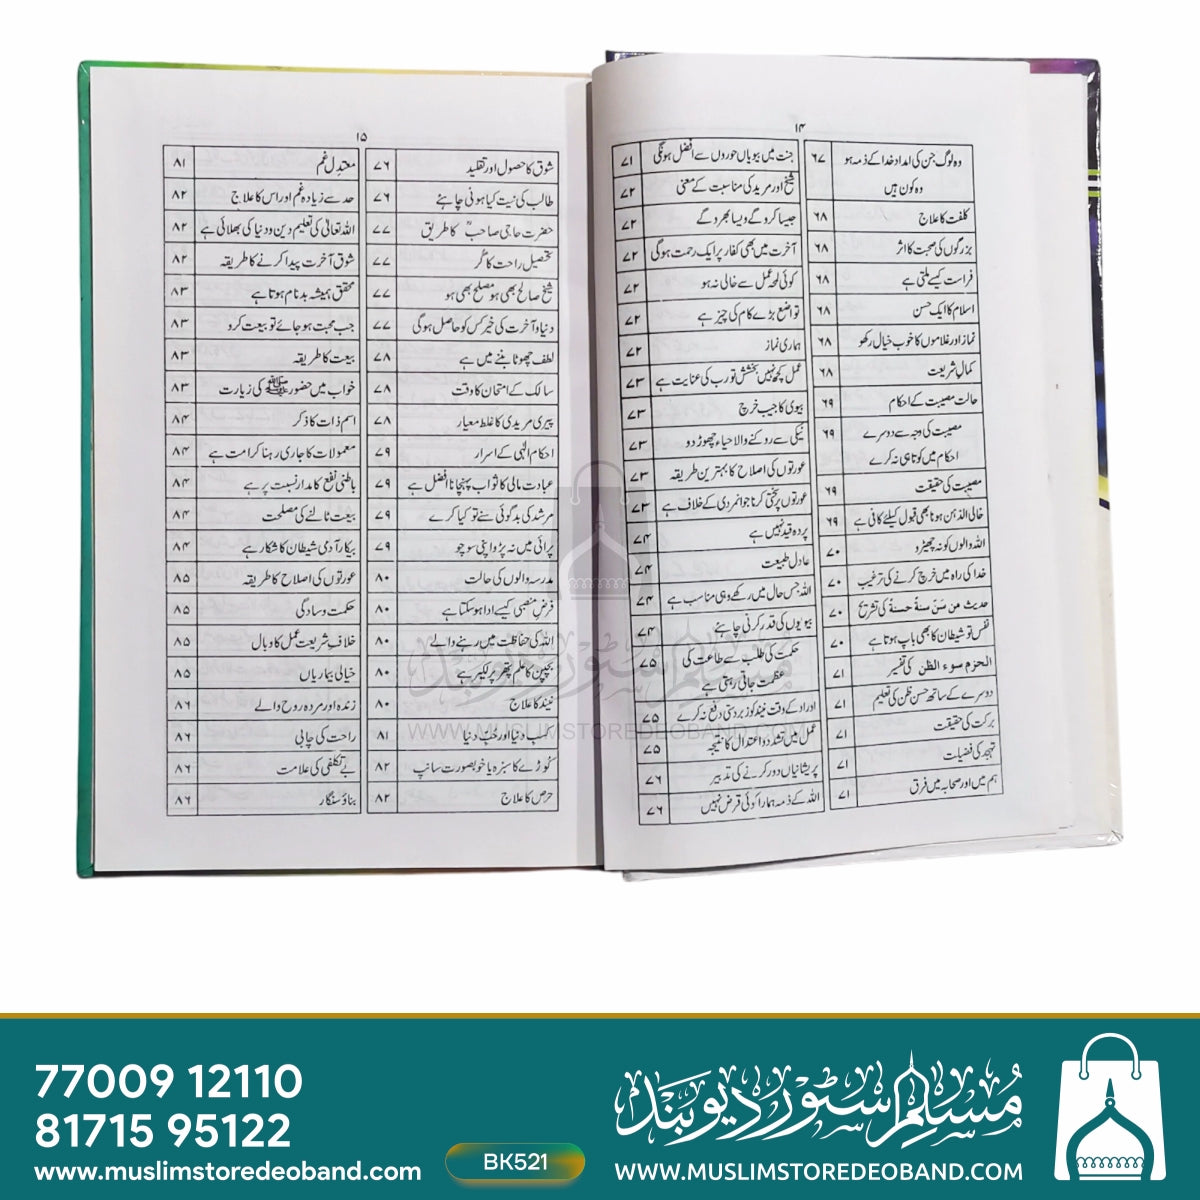 ۱۴
وہ لوگ جن کی امداد خدا کے ذمہ ہو ۶۷
وہ کون ہیں
کلفت کا علاج ۶۸
بزرگوں کی صحبت کا اثر ۶۸
فراست کیسے ملتی ہے ۶۸
اسلام کا ایک حسن ۶۸
نماز اور غلاموں کا خوب خیال رکھو ۶۸
کمالِ شریعت ۶۸
حالت مصیبت کے احکام ۶۹
مصیبت کی وجہ سے دوسرے ۶۹
احکام میں کوتاہی نہ کرے
مصیبت کی حقیقت ۶۹
خالی الذہن ہونا بھی قبول کیلئے کافی ہے ۶۹
اللہ والوں کو نہ چھیڑو ۷۰
خدا کی راہ میں خرچ کرنے کی ترغیب ۷۰
حدیث من سَنّ سنةً حسنة کی تشریح ۷۰
نفس تو شیطان کا بھی باپ ہوتا ہے ۷۰
الحزم سوء الظن کی تفسیر ۷۱
دوسرے کے ساتھ حسن ظن کی تعلیم ۷۱
برکت کی حقیقت ۷۱
تہجد کی فضیلت ۷۱
ہم میں اور صحابہ میں فرق ۷۱
جنت میں بیویاں حوروں سے افضل ہونگی ۷۱
شیخ اور مرید کی مناسبت کے معنی ۷۲
جیسا کرو گے ویسا بھرو گے ۷۲
آخرت میں بھی کفار پر ایک رحمت ہوگی ۷۲
کوئی لمحہ عمل سے خالی نہ ہو ۷۲
تواضع بڑے کام کی چیز ہے ۷۲
ہماری نماز ۷۲
عمل کچھ نہیں بخشش تو رب کی عنایت ہے ۷۳
بیوی کا جیب خرچ ۷۳
نیکی سے روکنے والا حیاء چھوڑ دو ۷۳
عورتوں کی اصلاح کا بہترین طریقہ ۷۳
عورتوں پر سختی کرنا جوانمردی کے خلاف ہے ۷۳
پردہ قید نہیں ہے ۷۴
عادل طبیعت ۷۴
اللہ جس حال میں رکھے وہی مناسب ہے ۷۴
بیویوں کی قدر کرنی چاہئے ۷۴
حکمت کی طلب سے طاعت کی ۷۵
عظمت جاتی رہتی ہے
اوراد کے وقت نیند کو زبردستی دفع نہ کرے ۷۵
عمل میں تشدد و اعتدال کا نتیجہ ۷۵
پریشانیاں دور کرنے کی تدبیر ۷۶
اللہ کے ذمہ ہمارا کوئی قرض نہیں ۷۶
۱۵
شوق کا حصول اور تقلید ۷۶
طالب کی نیت کیا ہونی چاہئے ۷۶
حضرت حاجی صاحبؒ کا طریق ۷۷
تحصیل راحت کا گُر ۷۷
شیخ صالح بھی ہو مصلح بھی ہو ۷۷
دنیا و آخرت کی خیر کس کو حاصل ہوگی ۷۷
لطف چھوٹا بننے میں ہے ۷۸
سالک کے امتحان کا وقت ۷۸
پیری مریدی کا غلط معیار ۷۸
احکام الٰہی کے اسرار ۷۹
عبادت مالی کا ثواب پہنچانا افضل ہے ۷۹
مرشد کی بدگوئی سنے تو کیا کرے ۷۹
پرائی میں نہ پڑو اپنی سوچو ۷۹
مدرسہ والوں کی حالت ۸۰
فرضِ منصبی کیسے ادا ہو سکتا ہے ۸۰
اللہ کی حفاظت میں رہنے والے ۸۰
بچپن کا علم پتھر پر لکیر ہے ۸۰
نیند کا علاج ۸۰
کسب دنیا اور حُبِّ دنیا ۸۱
کوڑے کا سبزہ یا خوبصورت سانپ ۸۲
حرص کا علاج ۸۲
معتدل غم ۸۱
حد سے زیادہ غم اور اس کا علاج ۸۲
اللہ تعالیٰ کی تعلیم دین و دنیا کی بھلائی ہے ۸۲
شوق آخرت پیدا کرنے کا طریقہ ۸۲
محقق ہمیشہ بدنام ہوتا ہے ۸۳
جب محبت ہو جائے تو بیعت کرو ۸۳
بیعت کا طریقہ ۸۳
خواب میں حضور ﷺ کی زیارت ۸۳
اسم ذات کا ذکر ۸۴
معمولات کا جاری رہنا کرامت ہے ۸۴
باطنی نفع کا مدار نسبت پر ہے ۸۴
بیعت ٹالنے کی مصلحت ۸۴
بیکار آدمی شیطان کا شکار ہے ۸۴
عورتوں کی اصلاح کا طریقہ ۸۵
حکمت و سادگی ۸۵
خلافِ شریعت عمل کا وبال ۸۵
خیالی بیماریاں ۸۵
زندہ اور مردہ روح والے ۸۶
راحت کی چابی ۸۶
بے تکلفی کی علامت ۸۶
بناؤ سنگار ۸۶
مسلم سٹور دیوبند
WWW.MUSLIMSTOREDEOBAND.COM
77009 12110
81715 95122
www.muslimstoredeoband.com
BK521
مسلم سٹور دیوبند
WWW.MUSLIMSTOREDEOBAND.COM